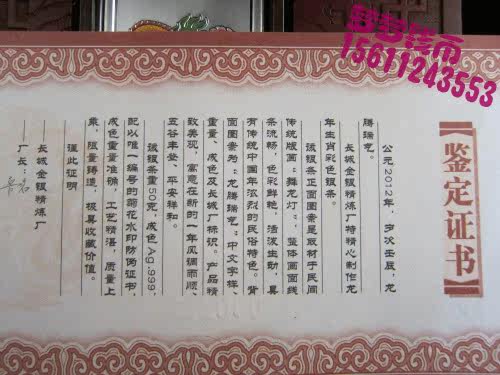 梦多钱币
15611243553
【鉴定证书】
公元2012年，岁次壬辰，龙
腾瑞艺。
长城金银精炼厂特精心制作龙
年生肖彩色银条。
该银条正面图案是取材于民间
传统版画“舞龙灯”，整体画面线
条流畅，色彩鲜艳，活泼生动，具
有传统中国年浓烈的民俗特色。背
面图案为“龙腾瑞艺”中文字样、
重量、成色及长城厂标识。产品精
致美观，寓意在新的一年风调雨顺、
五谷丰登、平安祥和。
该银条重50克，成色Ag.999，
配以唯一编号的荷花水印防伪证书，
成色重量准确，工艺精湛，质量上
乘，限量铸造，极具收藏价值。
谨此证明
长城金银精炼厂
厂长：